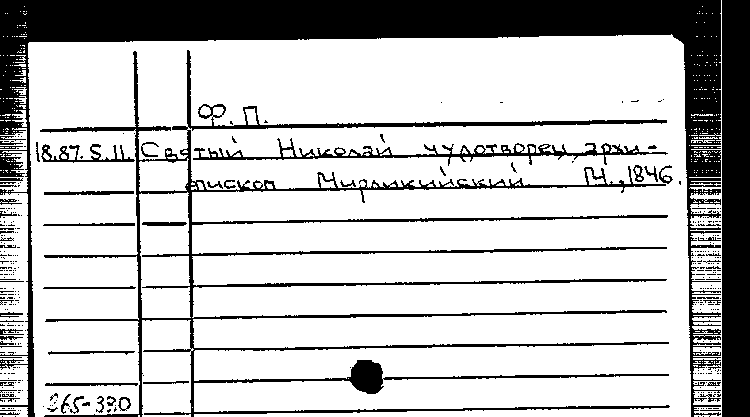 Ф. П.
18.87.5.11. Святый Николай чудотворец, архи-
епископ Мирликийский М., 1846.
265-330